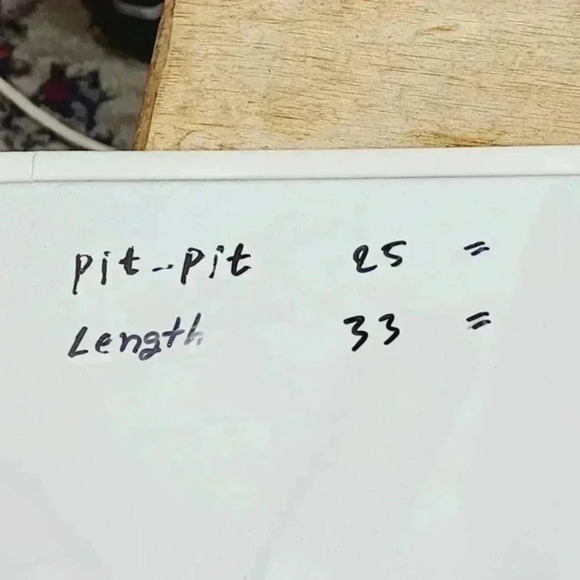 Pit-Pit 25 =
Length 33 =